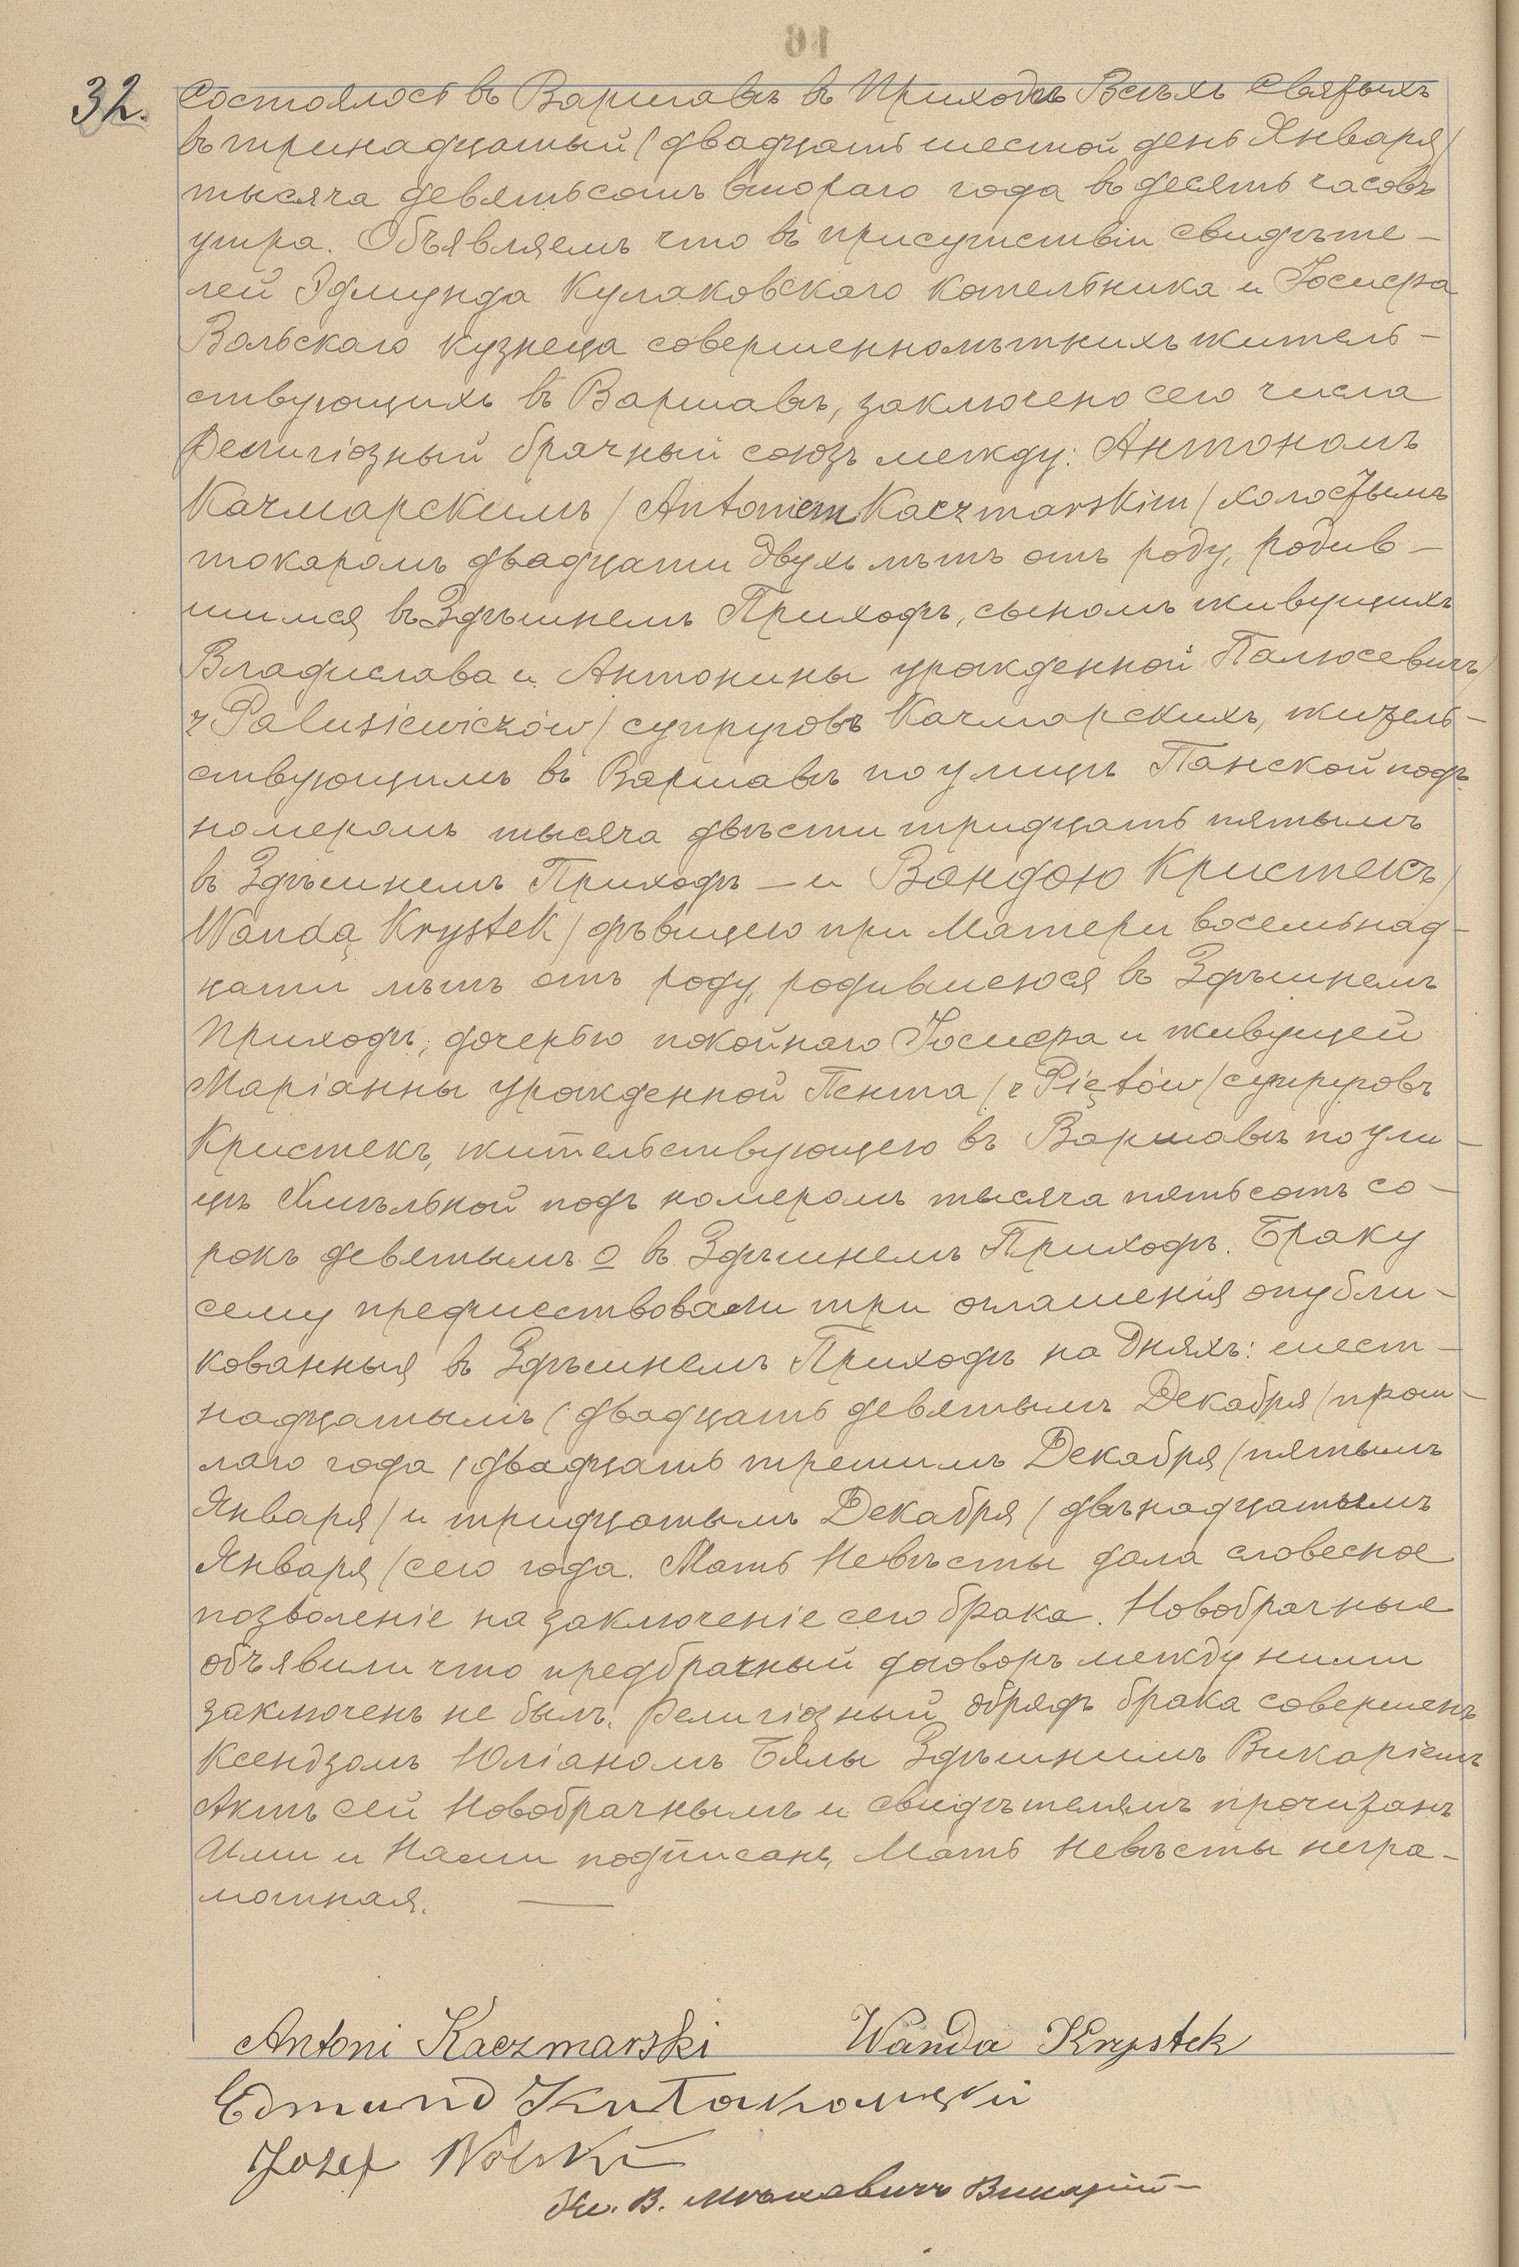 16
32.
Состоялось въ Варшавѣ въ Приходѣ Всѣхъ Святыхъ
въ тринадцатый / двадцать шестой день Января /
тысяча девятьсотъ второго года въ десять часовъ
утра. Объявляемъ что въ присутствіи свидѣте-
лей Эдмунда Кулаковскаго котельника и Іосифа
Вольскаго кузнеца совершеннолѣтнихъ житель-
ствующихъ въ Варшавѣ, заключено сего числа
Религіозный брачный союзъ между: Антономъ
Качмарскимъ / Antonim Kaczmarskim / холостымъ
токаромъ двадцати двухъ лѣтъ отъ роду, родив-
шимся въ Здѣшнемъ Приходѣ, сыномъ живущихъ
Владислава и Антонины урожденной Палюсевичъ /
z Palusiewiczów / супруговъ Качмарскихъ, житель-
ствующимъ въ Варшавѣ по улицѣ Панской подъ
номеромъ тысяча двѣсти тридцать пятымъ
въ Здѣшнемъ Приходѣ — и Вандою Кристекъ /
Wandą Krystek / дѣвицею при Матери восемьнад-
цати лѣтъ отъ роду, родившеюся въ Здѣшнемъ
Приходѣ, дочерью покойнаго Іосифа и живущей
Маріанны урожденной Пента / z Piętów / супруговъ
Кристекъ, жительствующею въ Варшавѣ по ули-
цѣ Хмѣльной подъ номеромъ тысяча пятьсотъ со-
рокъ девятымъ о въ Здѣшнемъ Приходѣ. Браку
сему предшествовали три оглашенія опубли-
кованныя въ Здѣшнемъ Приходѣ на дняхъ: шест-
надцатымъ / двадцать девятымъ Декабря / прош-
лаго года / двадцать третимъ Декабря / пятымъ
Января / и тридцатымъ Декабря / двѣнадцатымъ
Января / сего года. Мать Невѣсты дала словесное
позволеніе на заключеніе сего брака. Новобрачные
объявили что предбрачный договоръ между ними
заключенъ не былъ. Религіозный обрядъ брака совершенъ
Ксендзомъ Юліаномъ Бялы Здѣшнимъ Викаріемъ
Актъ сей Новобрачнымъ и свидѣтелямъ прочитанъ
Ими и Нами подписанъ, Мать Невѣсты негра-
мотная.
Antoni Kaczmarski Wanda Krystek
Edmund Kułakowski
Jozef Wolski
Кс. В. Викарій